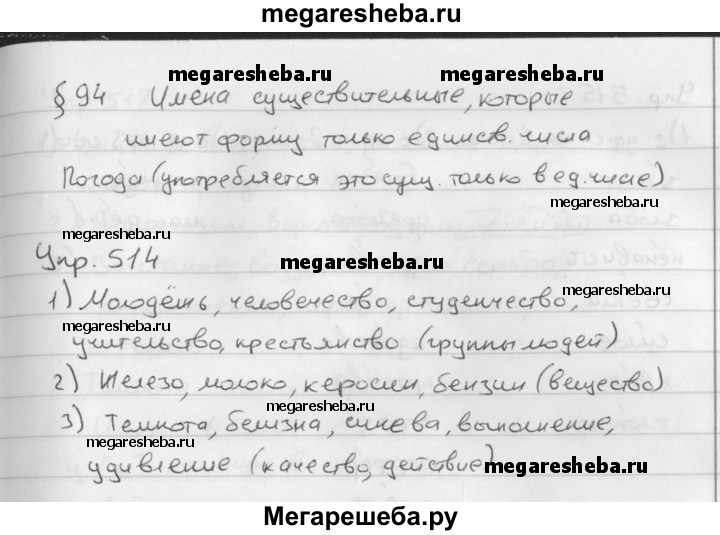 megaresheba.ru
megaresheba.ru megaresheba.ru
§ 94 Имена существительные, которые
имеют форму только единств. числа
Погода (употребляется это сущ. только в ед. числе)
megaresheba.ru
megaresheba.ru
Упр. 514
megaresheba.ru
megaresheba.ru
1) Молодёжь, человечество, студенчество,
megaresheba.ru
учительство, крестьянство (группы людей)
2) Железо, молоко, керосин, бензин (вещество)
megaresheba.ru
3) Темнота, белизна, синева, выполнение,
megaresheba.ru
удивление (качество, действие)
megaresheba.ru
Мегарешеба.ру